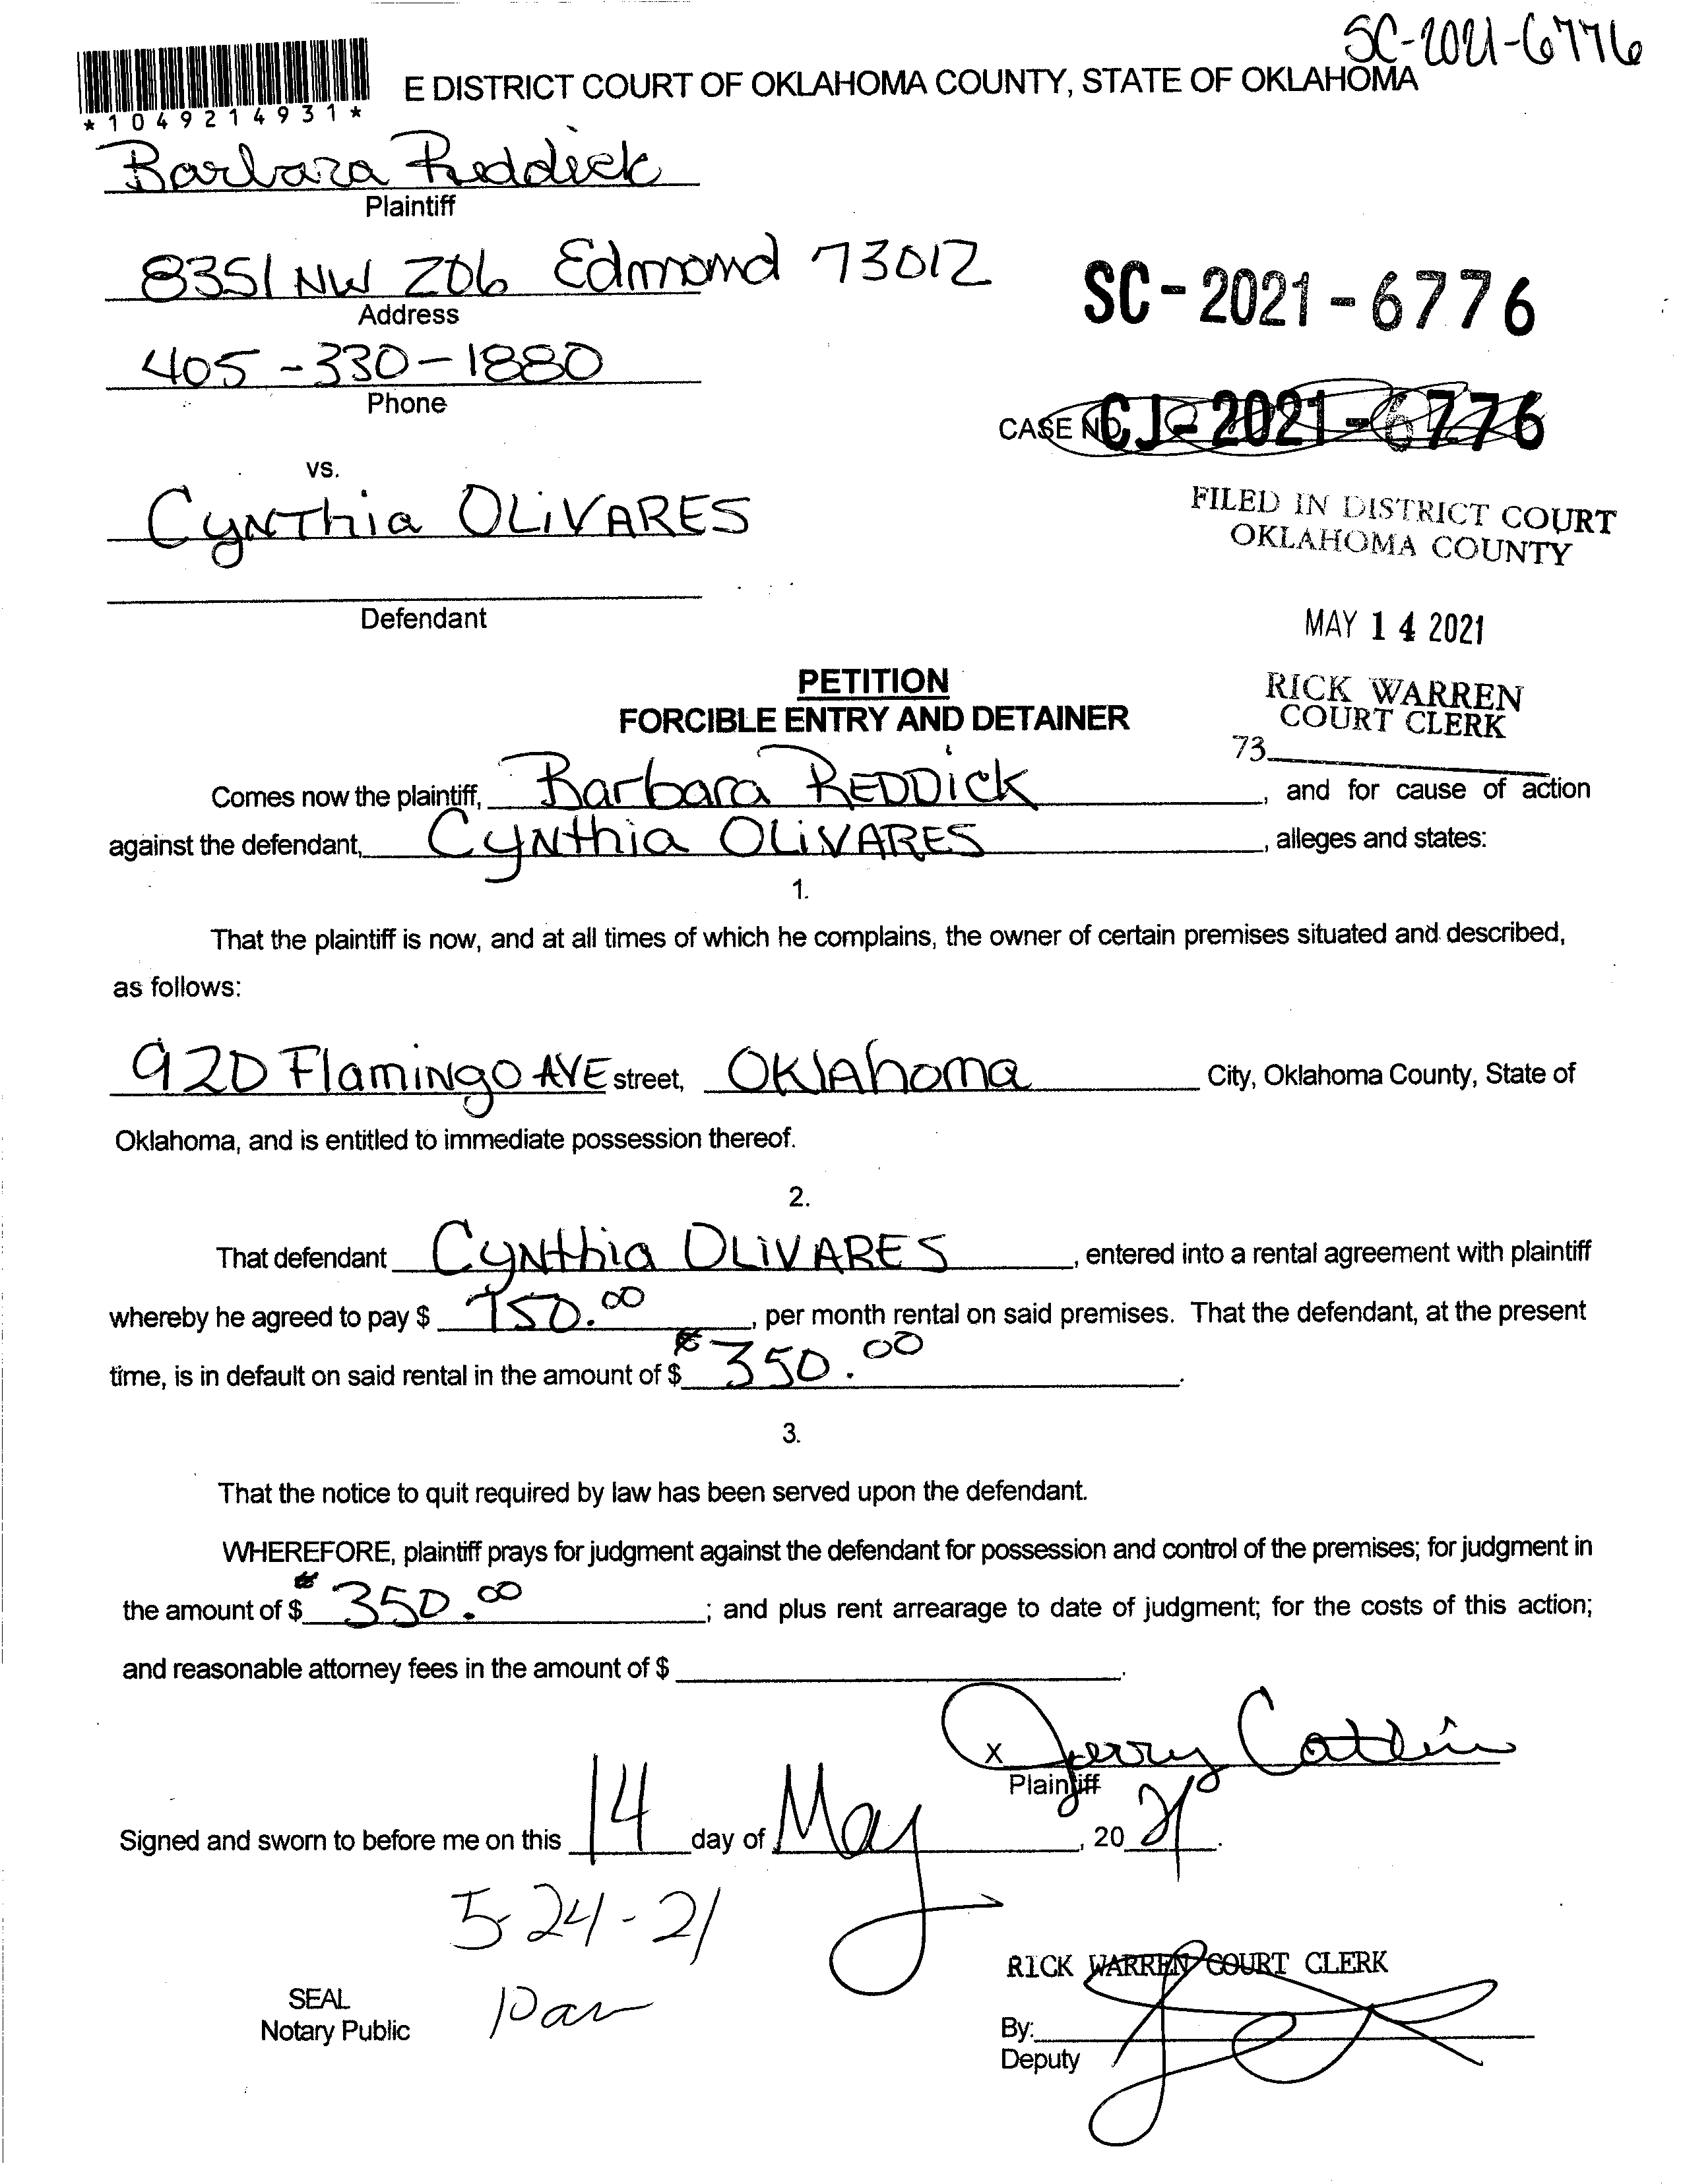 SC-2021-6776
E DISTRICT COURT OF OKLAHOMA COUNTY, STATE OF OKLAHOMA
*1049214931*
Barbara Reddick
Plaintiff
8351 NW 206 Edmond 73012
Address
SC-2021-6776
405-330-1880
Phone
CASE NO. CJ-2021-6776
vs.
Cynthia OLIVARES
FILED IN DISTRICT COURT
OKLAHOMA COUNTY
Defendant
MAY 14 2021
PETITION
RICK WARREN
FORCIBLE ENTRY AND DETAINER
COURT CLERK
73
Comes now the plaintiff, Barbara REDDICK, and for cause of action
against the defendant, Cynthia OLIVARES, alleges and states:
1.
That the plaintiff is now, and at all times of which he complains, the owner of certain premises situated and described,
as follows:
920 Flamingo AVE street, Oklahoma City, Oklahoma County, State of
Oklahoma, and is entitled to immediate possession thereof.
2.
That defendant Cynthia OLIVARES, entered into a rental agreement with plaintiff
whereby he agreed to pay $ 750.00, per month rental on said premises. That the defendant, at the present
time, is in default on said rental in the amount of $ 350.00.
3.
That the notice to quit required by law has been served upon the defendant.
WHEREFORE, plaintiff prays for judgment against the defendant for possession and control of the premises; for judgment in
the amount of $ 350.00; and plus rent arrearage to date of judgment; for the costs of this action;
and reasonable attorney fees in the amount of $ .
X Jerry
Plaintiff
Signed and sworn to before me on this 14 day of May, 2021.
5-24-21
RICK WARREN COURT CLERK
SEAL
Notary Public
By:
Deputy